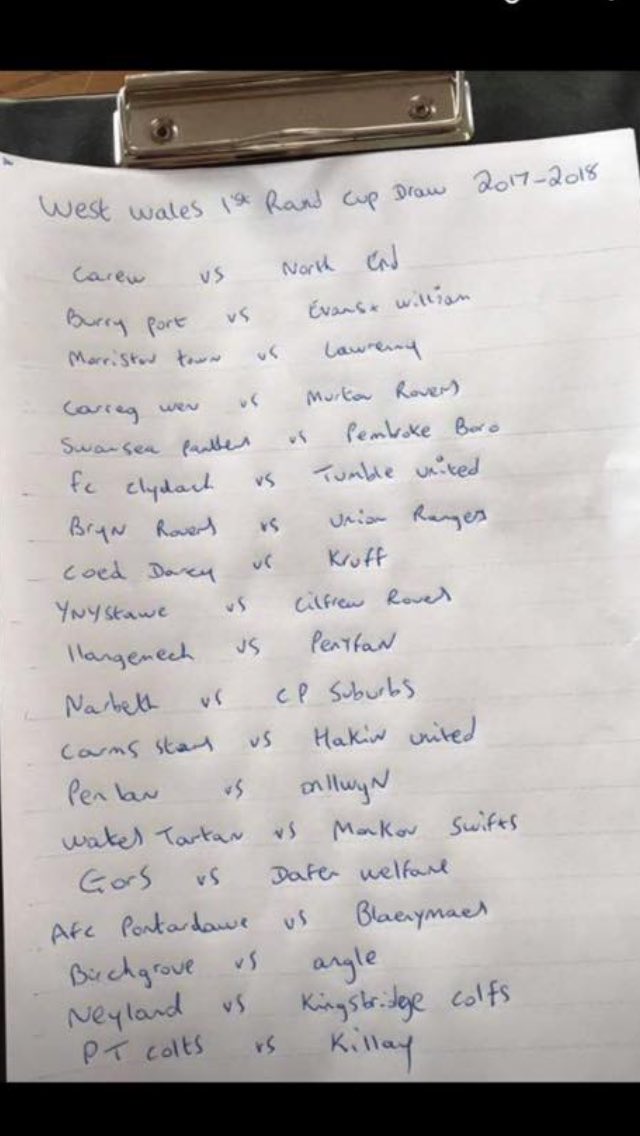 West Wales 1st Round Cup Draw 2017-2018
Carew vs North End
Burry port vs Evans & William
Morriston town vs Lawrenny
Carreg wen vs Murton Rovers
Swansea Panthers vs Pembroke Boro
fc clydach vs Tumble united
Bryn Rovers vs Union Rangers
Coed Darcy vs Kruff
YNYstawe vs Cilfrew Rovers
llangenech vs PenYfaN
Narbeth vs CP Suburbs
Carms stars vs Hakin united
Penlan vs onllwyN
Wakes Tartan vs Monkton Swifts
Gors vs Dafen welfare
Afc Pontardawe vs Blaenymaes
Birchgrove vs angle
Neyland vs Kingsbridge colts
PT colts vs Killay